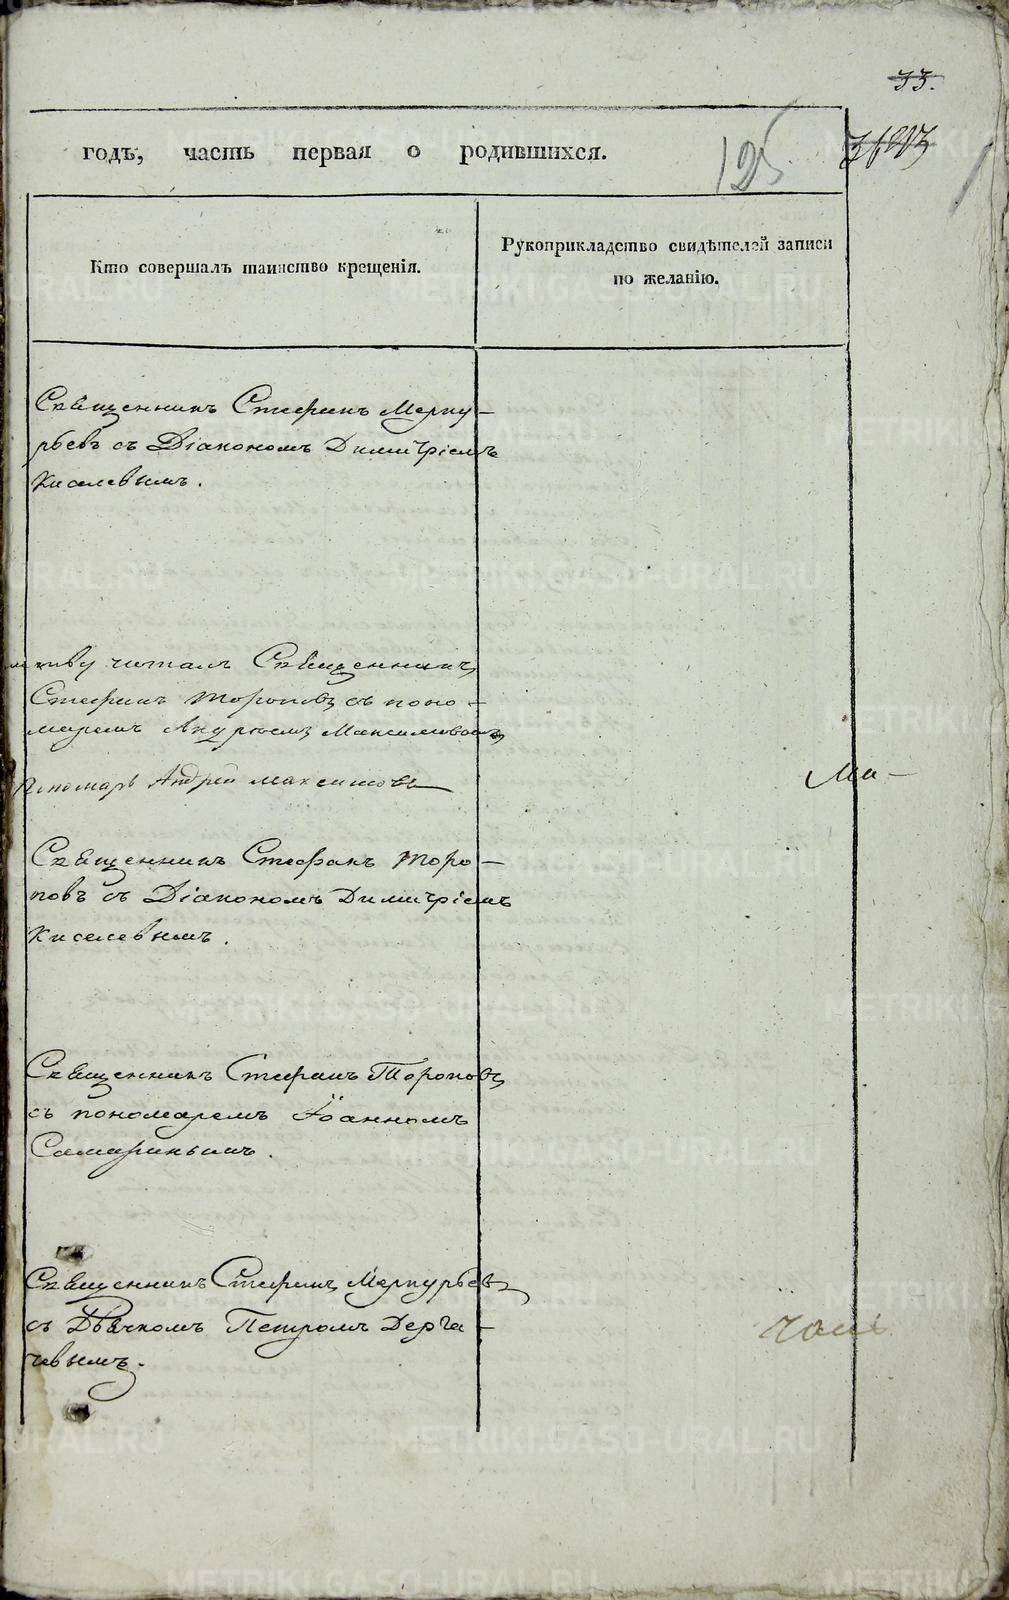 33.
годъ, часть первая о родившихся.
125
Кто совершалъ таинство крещенія.
Рукоприкладство свидѣтелей записи
по желанію.
Священникъ Стефанъ Мерку-
рьевъ съ Діакономъ Димитріемъ
Киселевымъ.
читалъ Священникъ
Стефанъ Тороповъ съ поно-
маремъ Андреемъ Максимовымъ
Пономарь Андрей Максимовъ
Ма-
Священникъ Стефанъ Торо-
повъ съ Діакономъ Димитріемъ
Киселевымъ.
Священникъ Стефанъ Тороповъ
съ пономаремъ Іоанномъ
Самаринымъ.
Священникъ Стефанъ Меркурьевъ
съ Дьячкомъ Петромъ Дерга-
чевымъ.
METRIKI.GASO-URAL.RU